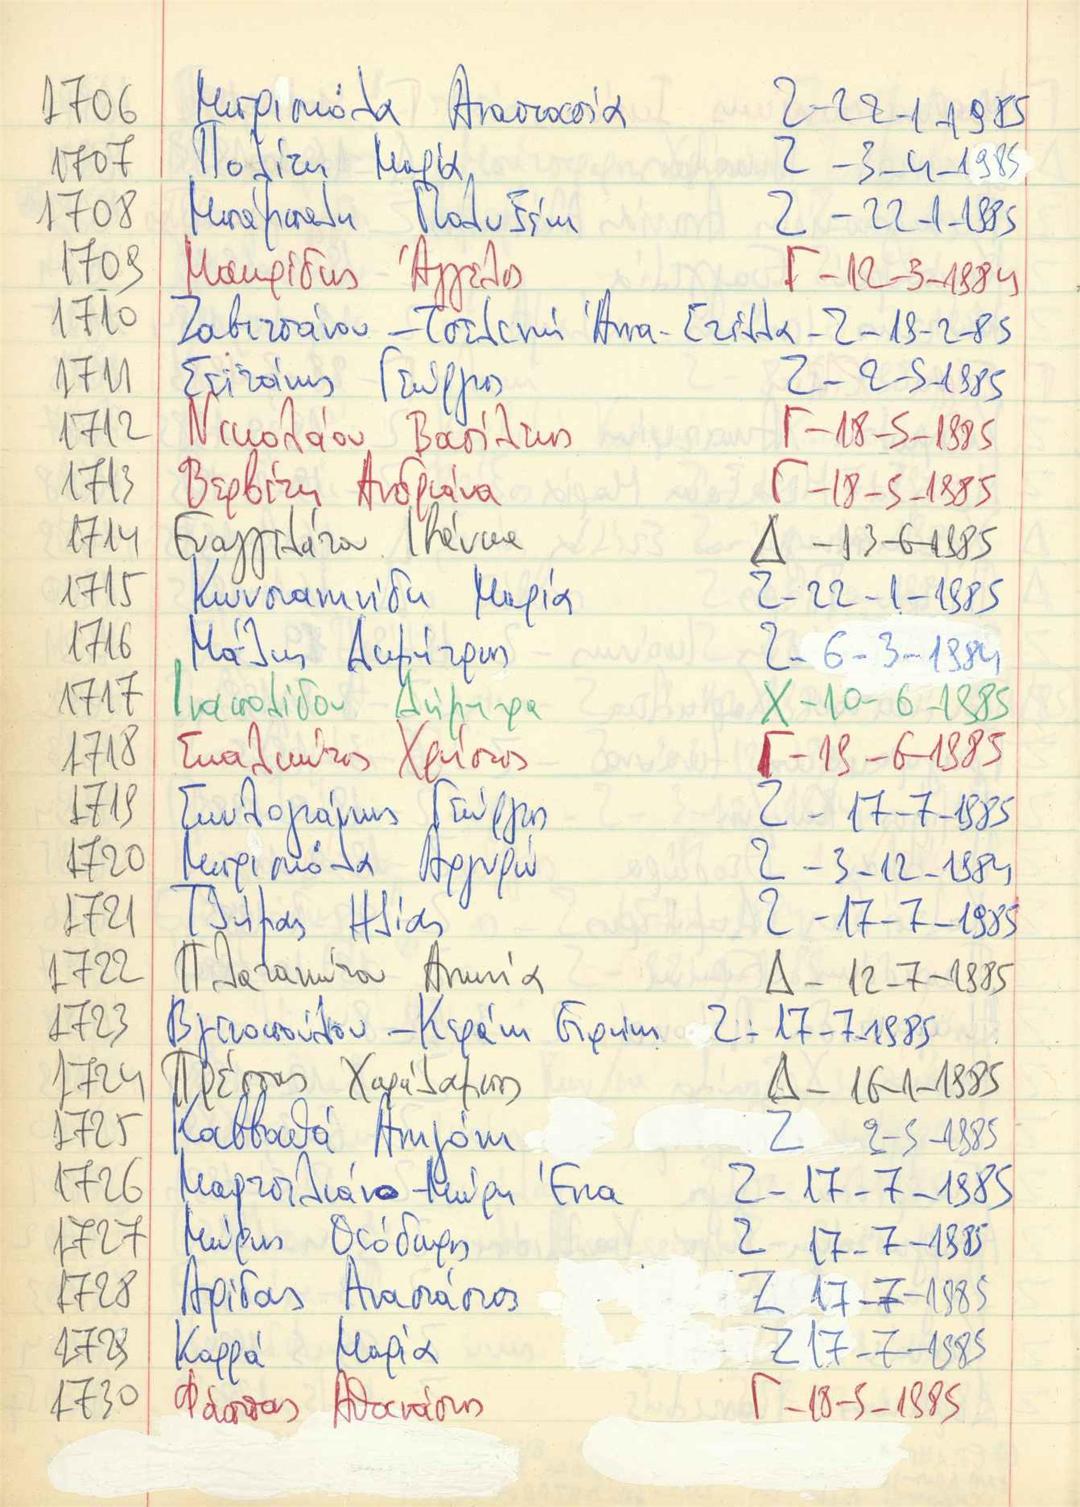 1706 Μπιρμπίλα Αναστασία Ζ-22-1-1985
1707 Πολίτη Μαρία Ζ-3-4-1985
1708 Μπάμπαλη Πολυξένη Ζ-22-1-1985
1709 Μακρίδης Άγγελος Γ-12-3-1984
1710 Ζαβιτσάνου-Τσελενή Άννα-Στέλλα-Ζ-19-2-85
1711 Σεϊτάνης Γεώργιος Ζ-2-5-1985
1712 Νικολάου Βασίλειος Γ-18-5-1985
1713 Βερβίτη Ανδριάνα Γ-18-5-1985
1714 Ευαγγελάτου Ιωάννα Δ-13-6-1985
1715 Κωνσταντινίδη Μαρία Ζ-22-1-1985
1716 Μάλης Δημήτριος Ζ-6-3-1984
1717 Δήμητρα Χ-10-6-1985
1718 Σκαλκώτος Χρήστος Γ-19-6-1985
1719 Γεώργιος Ζ-17-7-1985
1720 Αργυρώ Ζ-3-12-1984
1721 Τλήμας Ηλίας Ζ-17-7-1985
1722 Πλατανιώτου Αντωνία Δ-12-7-1985
1723 Βγενοπούλου-Κεράνη Ειρήνη Ζ-17-7-1985
1724 Πρέσσας Χαράλαμπος Δ-16-1-1985
1725 Καββαθά Αντιγόνη Ζ 2-5-1985
1726 Μαρτσελιάνο-Μώρη Έννα Ζ-17-7-1985
1727 Μώρης Θεόδωρος Ζ 17-7-1985
1728 Αρίδας Αναστάσιος Ζ 17-7-1985
1729 Καρρά Μαρία Ζ 17-7-1985
1730 Φάσσας Αθανάσιος Γ-18-5-1985